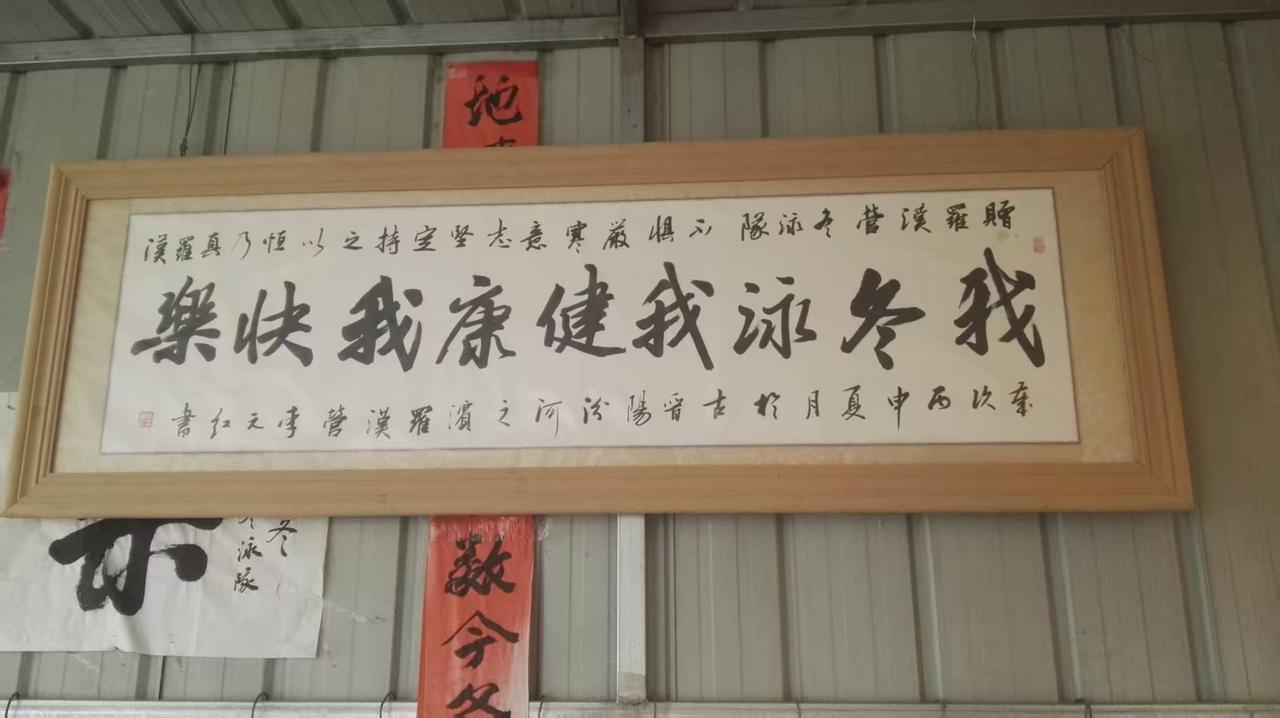 贈羅漢營冬泳隊不惧嚴寒意志堅定持之以恒乃真羅漢
我冬泳我健康我快樂
歲次丙申夏月於古晉陽汾河之濱羅漢營李元红書
地
数今冬
冬
冬泳隊